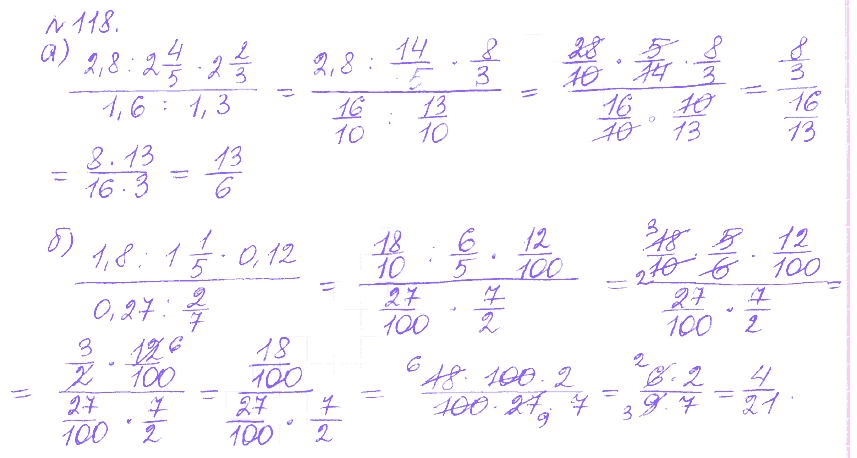 № 118.
а) (2,8 : 2 4/5 · 2 2/3)/(1,6 : 1,3) = (2,8 : 14/5 · 8/3)/(16/10 : 13/10) = (28/10 · 5/14 · 8/3)/(16/10 · 10/13) = (8/3)/(16/13)
= (8 · 13)/(16 · 3) = 13/6
б) (1,8 : 1 1/5 · 0,12)/(0,27 : 2/7) = (18/10 : 6/5 · 12/100)/(27/100 · 7/2) = (3 18/2 10 · 5/6 · 12/100)/(27/100 · 7/2) =
= (3/2 · 12 6/100)/(27/100 · 7/2) = (18/100)/(27/100 · 7/2) = (6 18 · 100 · 2)/(100 · 27 9 · 7) = (2 6 · 2)/(3 9 · 7) = 4/21.